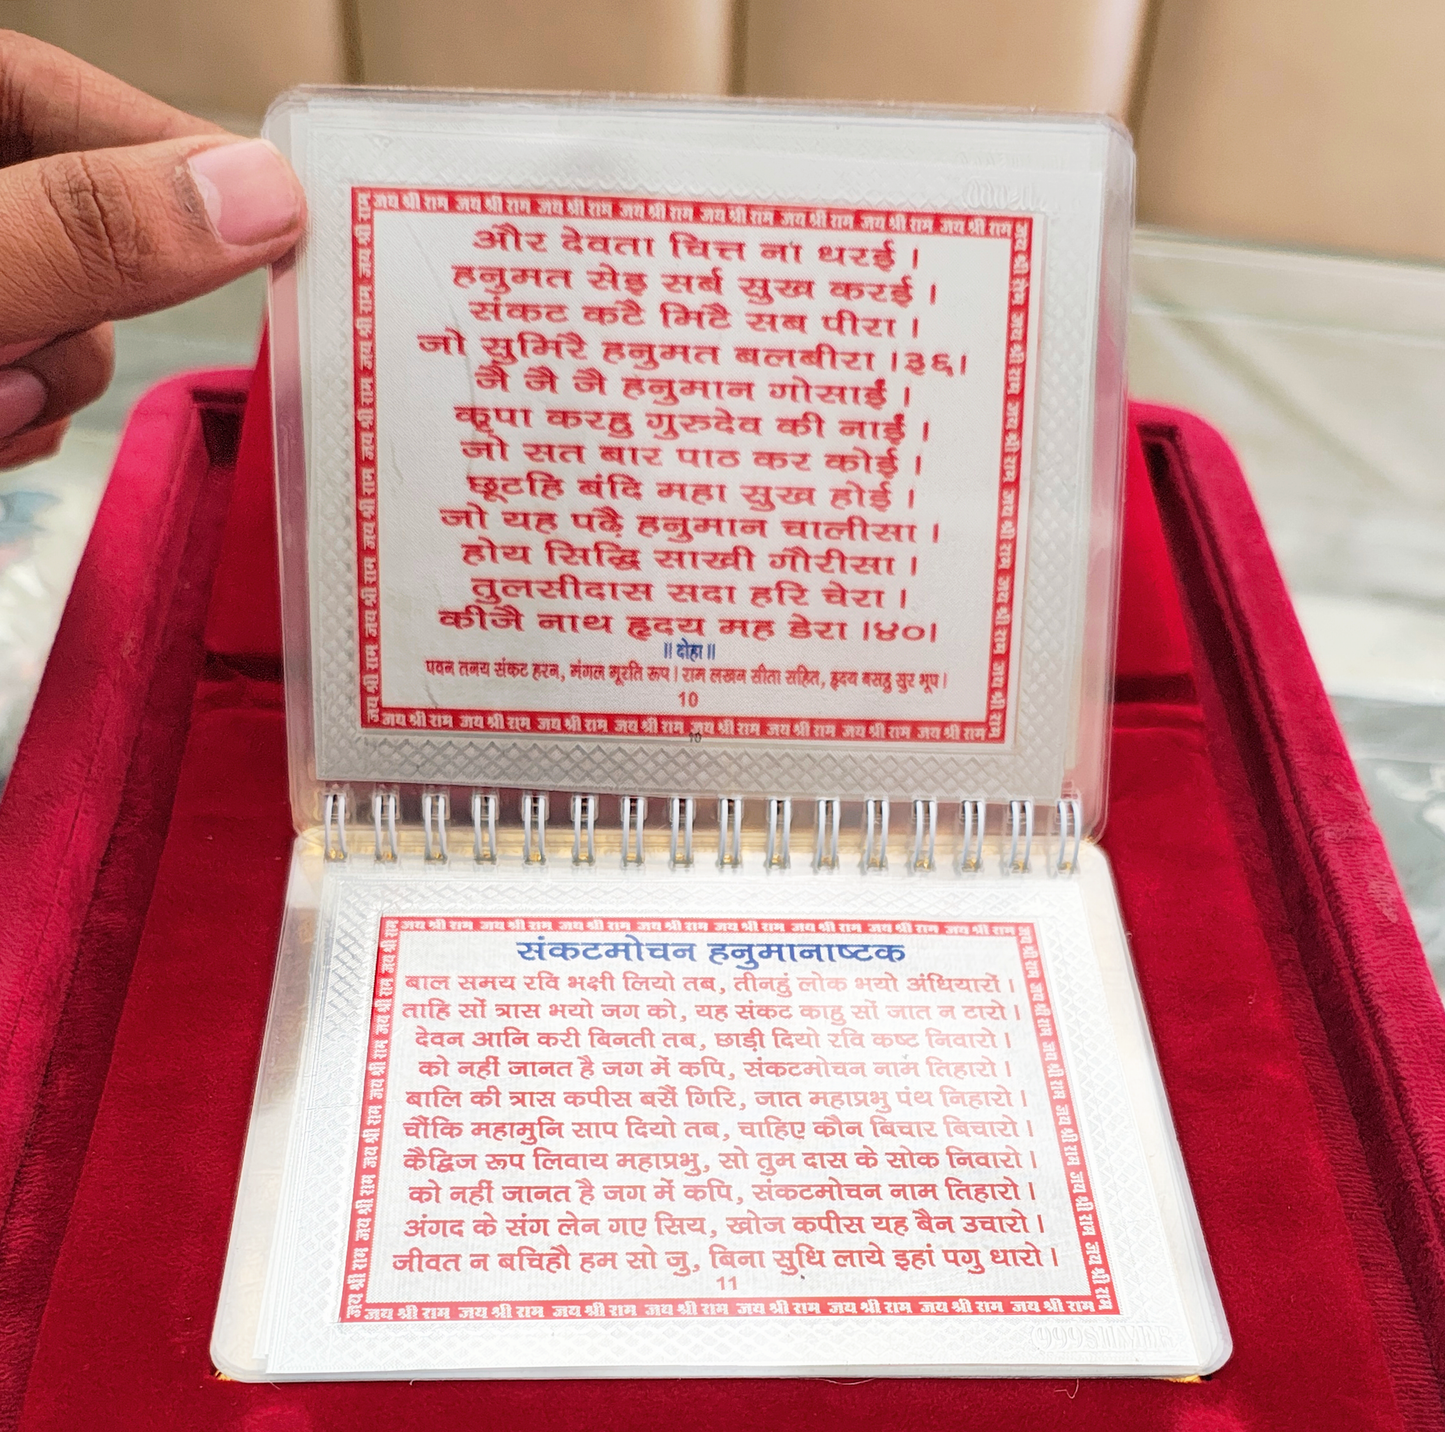 जय श्री राम जय श्री राम जय श्री राम जय श्री राम जय श्री राम जय श्री राम जय श्री राम जय श्री राम
और देवता चित्त ना धरई ।
हनुमत सेइ सर्ब सुख करई ।
संकट कटै मिटै सब पीरा ।
जो सुमिरै हनुमत बलबीरा ।३६।
जै जै जै हनुमान गोसाईं ।
कृपा करहु गुरुदेव की नाईं ।
जो सत बार पाठ कर कोई ।
छूटहि बंदि महा सुख होई ।
जो यह पढ़ै हनुमान चालीसा ।
होय सिद्धि साखी गौरीसा ।
तुलसीदास सदा हरि चेरा ।
कीजै नाथ हृदय मह डेरा ।४०।
॥ दोहा ॥
पवन तनय संकट हरन, मंगल मूरति रूप । राम लखन सीता सहित, हृदय बसहु सुर भूप ।
10
जय श्री राम जय श्री राम जय श्री राम जय श्री राम जय श्री राम जय श्री राम जय श्री राम जय श्री राम
10
जय श्री राम जय श्री राम जय श्री राम जय श्री राम जय श्री राम जय श्री राम जय श्री राम जय श्री राम
संकटमोचन हनुमानाष्टक
बाल समय रवि भक्षी लियो तब, तीनहुं लोक भयो अंधियारों ।
ताहि सों त्रास भयो जग को, यह संकट काहु सों जात न टारो ।
देवन आनि करी बिनती तब, छाड़ी दियो रवि कष्ट निवारो ।
को नहीं जानत है जग में कपि, संकटमोचन नाम तिहारो ।
बालि की त्रास कपीस बसैं गिरि, जात महाप्रभु पंथ निहारो ।
चौंकि महामुनि साप दियो तब, चाहिए कौन बिचार बिचारो ।
कैद्विज रूप लिवाय महाप्रभु, सो तुम दास के सोक निवारो ।
को नहीं जानत है जग में कपि, संकटमोचन नाम तिहारो ।
अंगद के संग लेन गए सिय, खोज कपीस यह बैन उचारो ।
जीवत न बचिहौ हम सो जु, बिना सुधि लाये इहां पगु धारो ।
11
जय श्री राम जय श्री राम जय श्री राम जय श्री राम जय श्री राम जय श्री राम जय श्री राम जय श्री राम